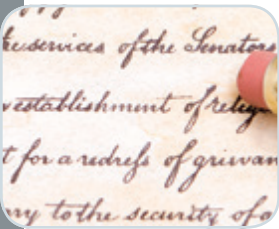 the services of the Senators
establishment of relig
t for a redress of grievan
ry to the security of a